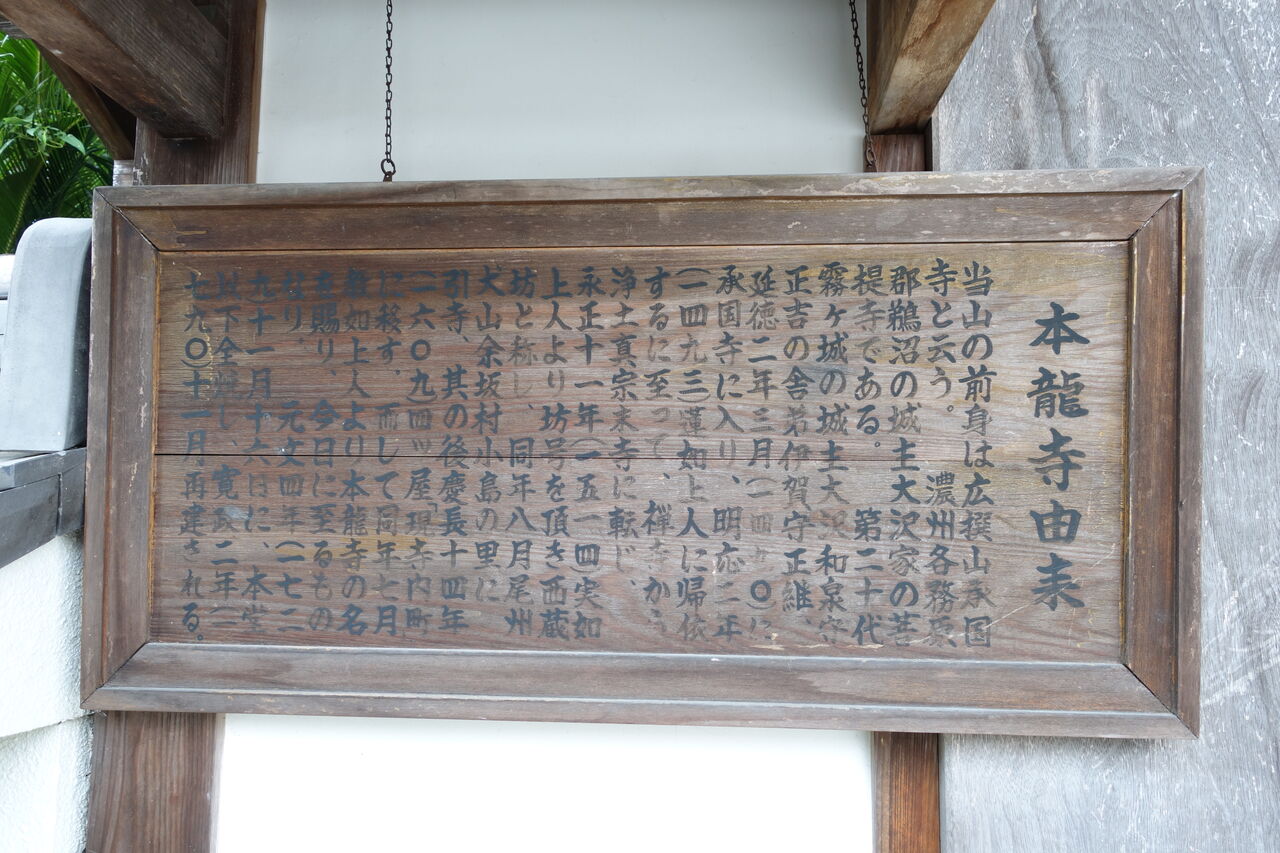 本龍寺由来
当山の前身は広撰山承国
寺と云う。濃州各務原
郡鵜沼の城主大沢家の菩
提寺である。第二十代
霧ヶ城の城主大沢和泉守
正吉の舎弟伊賀守正維、
延徳二年三月(一四九〇)に
承国寺に入り、明応二年
(一四九三)蓮如上人に帰依
するに至って、禅寺から
浄土真宗末寺に転じ、
永正十一年(一五一四)実如
上人より坊号を頂き西蔵
坊と称し、同年八月尾州
犬山余坂村小島の里に
引寺、其の後慶長十四年
(一六〇九)四ッ屋「現寺内町
に移す。而して同年七月
如上人より本龍寺の名
を賜り、今日に至るもの
なり。元文四年(一七三
九)十一月十六日に、本堂
以下全焼し、寛政二年(一
七九〇)十一月再建される。